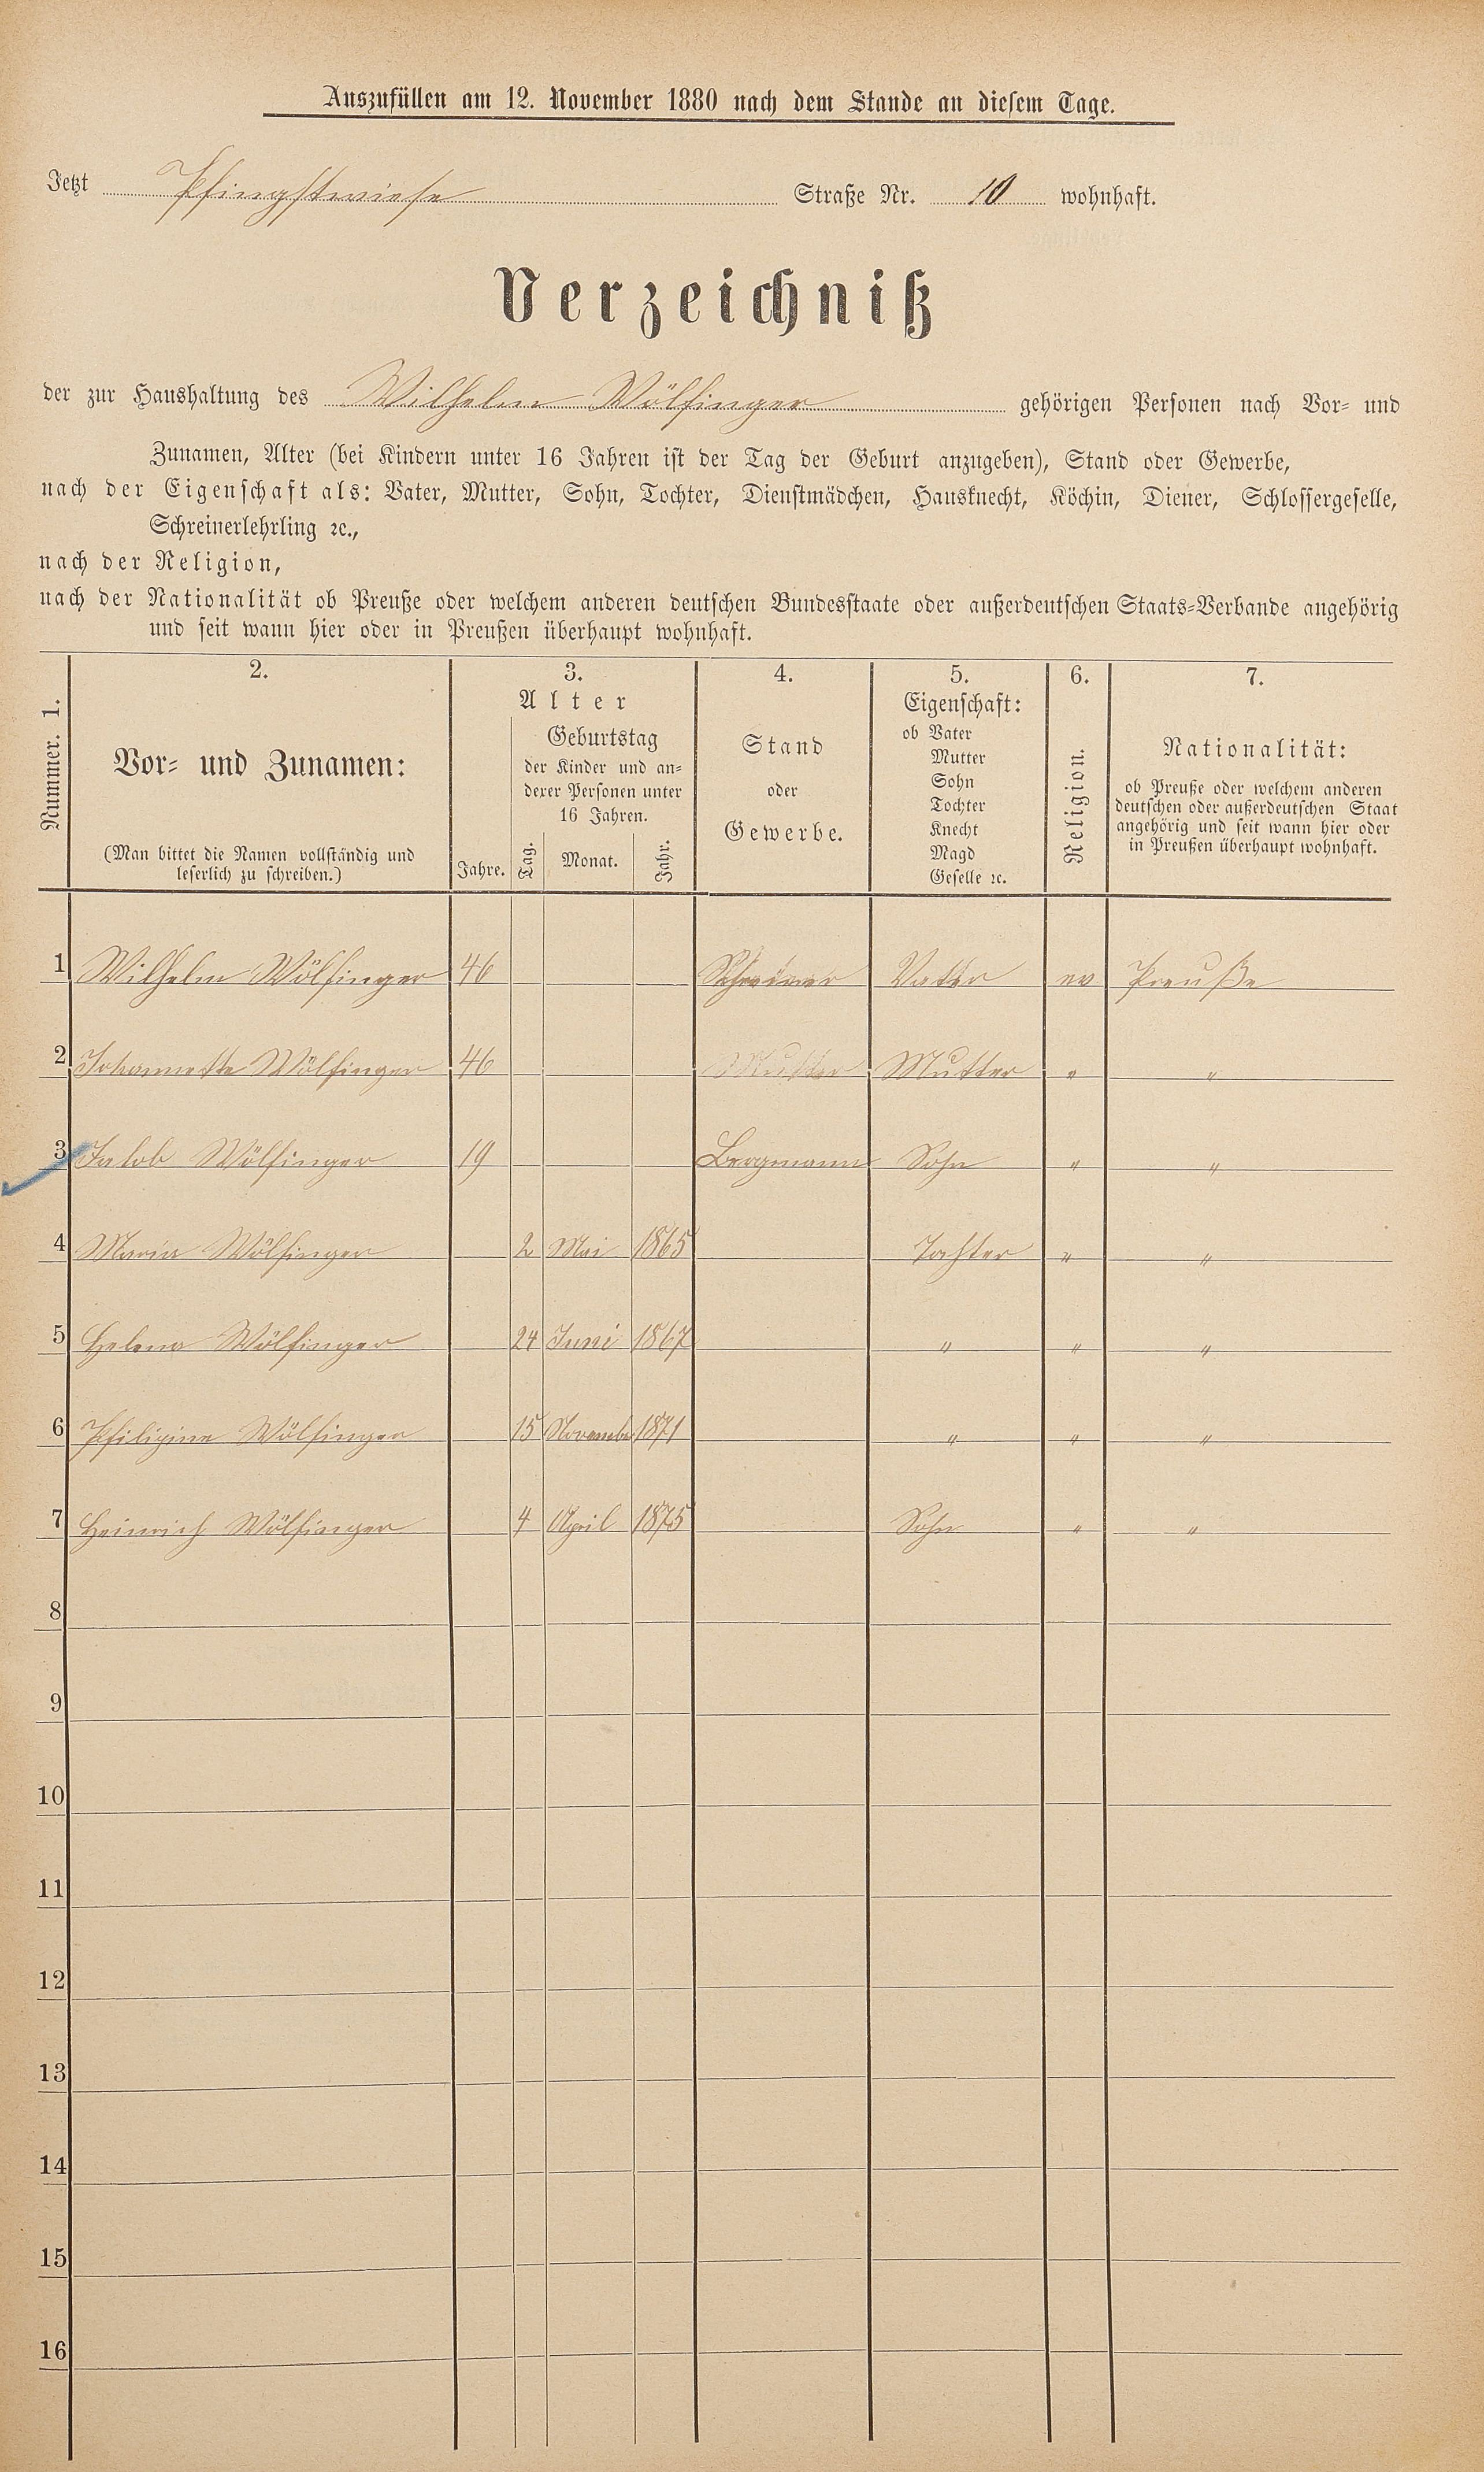 Auszufüllen am 12. November 1880 nach dem Stande an diesem Tage.
Jetzt Pfingstwiese Straße Nr. 10 wohnhaft.
Verzeichniß
der zur Haushaltung des Wilhelm Wölfinger gehörigen Personen nach Vor- und
Zunamen, Alter (bei Kindern unter 16 Jahren ist der Tag der Geburt anzugeben), Stand oder Gewerbe,
nach der Eigenschaft als: Vater, Mutter, Sohn, Tochter, Dienstmädchen, Hausknecht, Köchin, Diener, Schlossergeselle,
Schreinerlehrling ꝛc.,
nach der Religion,
nach der Nationalität ob Preuße oder welchem anderen deutschen Bundesstaate oder außerdeutschen Staats-Verbande angehörig
und seit wann hier oder in Preußen überhaupt wohnhaft.
Nummer. 1.
2.
Vor- und Zunamen:
(Man bittet die Namen vollständig und
leserlich zu schreiben.)
3.
Alter
Jahre.
Geburtstag
der Kinder und an-
derer Personen unter
16 Jahren.
Tag. Monat. Jahr.
4.
Stand
oder
Gewerbe.
5.
Eigenschaft:
ob Vater
Mutter
Sohn
Tochter
Knecht
Magd
Geselle ꝛc.
6.
Religion.
7.
Nationalität:
ob Preuße oder welchem anderen
deutschen oder außerdeutschen Staat
angehörig und seit wann hier oder
in Preußen überhaupt wohnhaft.
1 Wilhelm Wölfinger 46 Schreiner Vatter ev Preuße
2 Johannette Wölfinger 46 Mutter Mutter " "
3 Jakob Wölfinger 19 Bergmann Sohn " "
4 Maria Wölfinger 2 Mai 1865 Tochter " "
5 Helena Wölfinger 24 Juni 1867 " " "
6 Philipine Wölfinger 15 November 1871 " " "
7 Heinrich Wölfinger 4 April 1875 Sohn " "
8
9
10
11
12
13
14
15
16